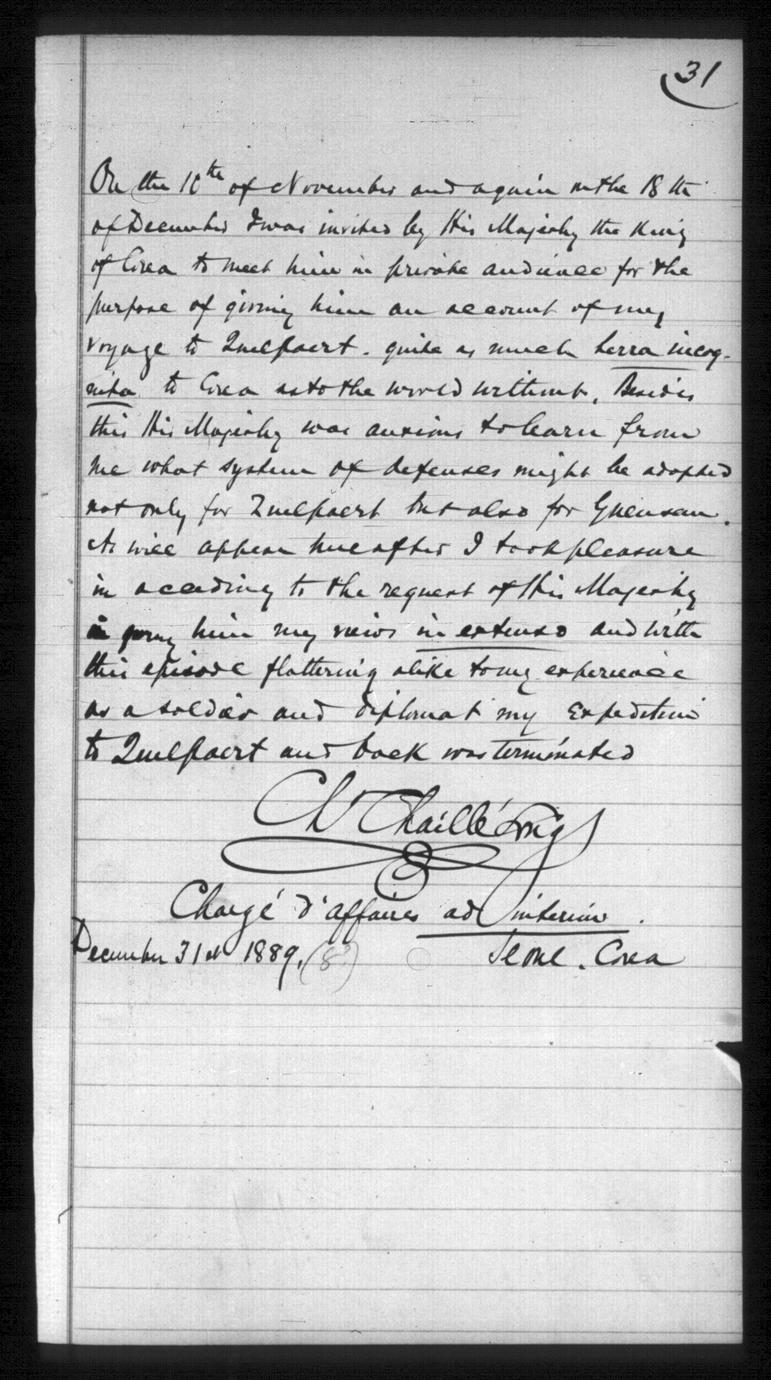 31
On the 10th of November and again on the 18th
of December I was invited by His Majesty the King
of Corea to meet him in private audience for the
purpose of giving him an account of my
voyage to Quelpaert. quite as much terra incog-
nita to Corea as to the world without. Besides
this His Majesty was anxious to learn from
me what system of defenses might be adopted
not only for Quelpaert but also for Guensan.
As will appear hereafter I took pleasure
in acceding to the request of His Majesty
in giving him my views in extenso and with
this episode flattering alike to my experience
as a soldier and diplomat my Expedition
to Quelpaert and back was terminated
Ch Chaillé Long
Chargé d'affaires ad interim.
December 31st 1889. (8?) Seoul. Corea